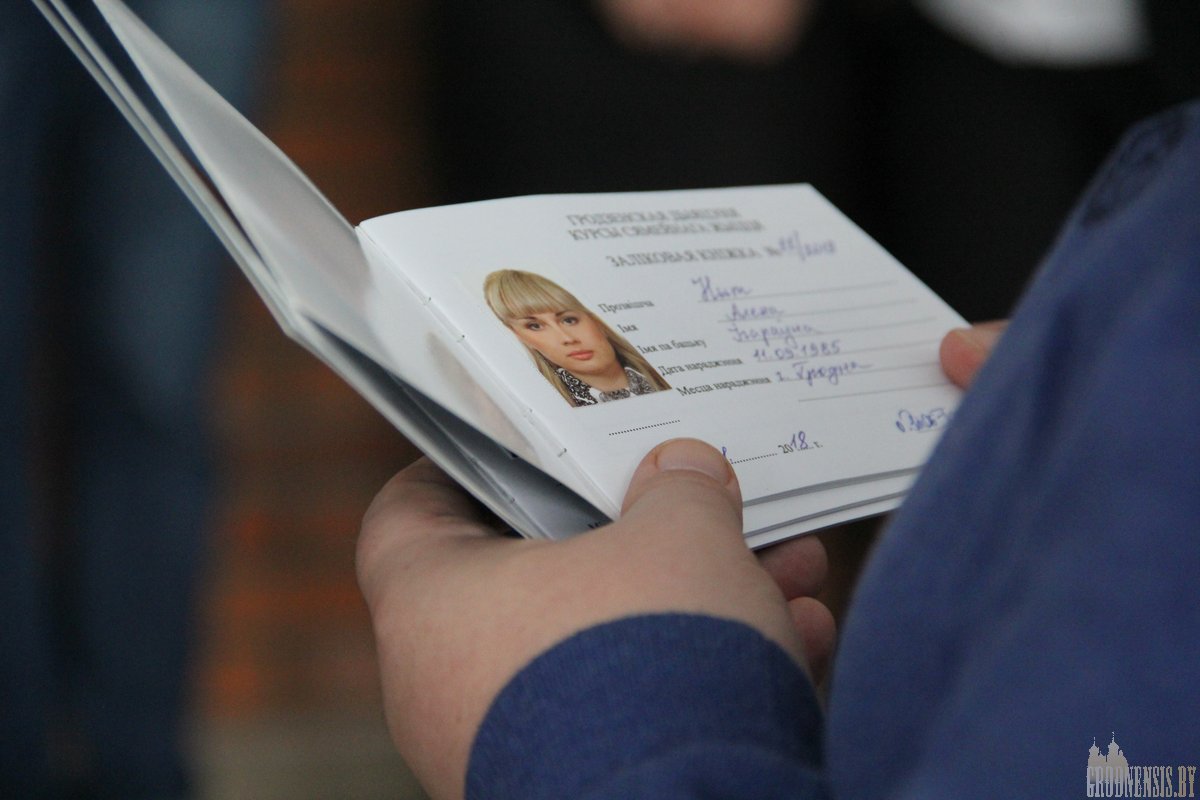 ГРОДЗЕНСКАЯ ДЫЯЦЭЗІЯ
КУРСЫ СЯМЕЙНАГА ЖЫЦЦЯ
ЗАЛІКОВАЯ КНІЖКА №
Прозвішча
Імя Алена
Імя па бацьку
Дата нараджэння 11.09.1985
Месца нараджэння г. Гродна
2018 г.
GRODNENSIS.BY